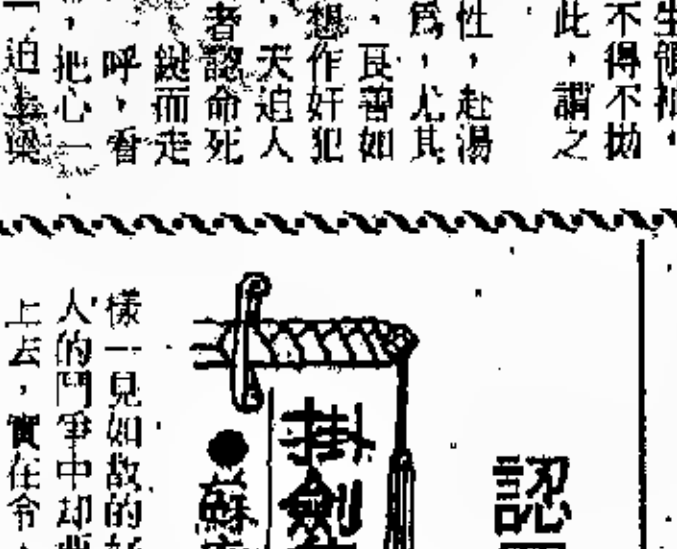 生領袖，
不得不拋
此，謂之
性，赴湯
為，尤其
，良善如
想作奸犯
，天迫人
者認命死
，鋌而走
呼，看
，把心一
迫上梁
認
掛劍
●蘇
樣一見如故的好
人的鬥爭中却
上去，實在令